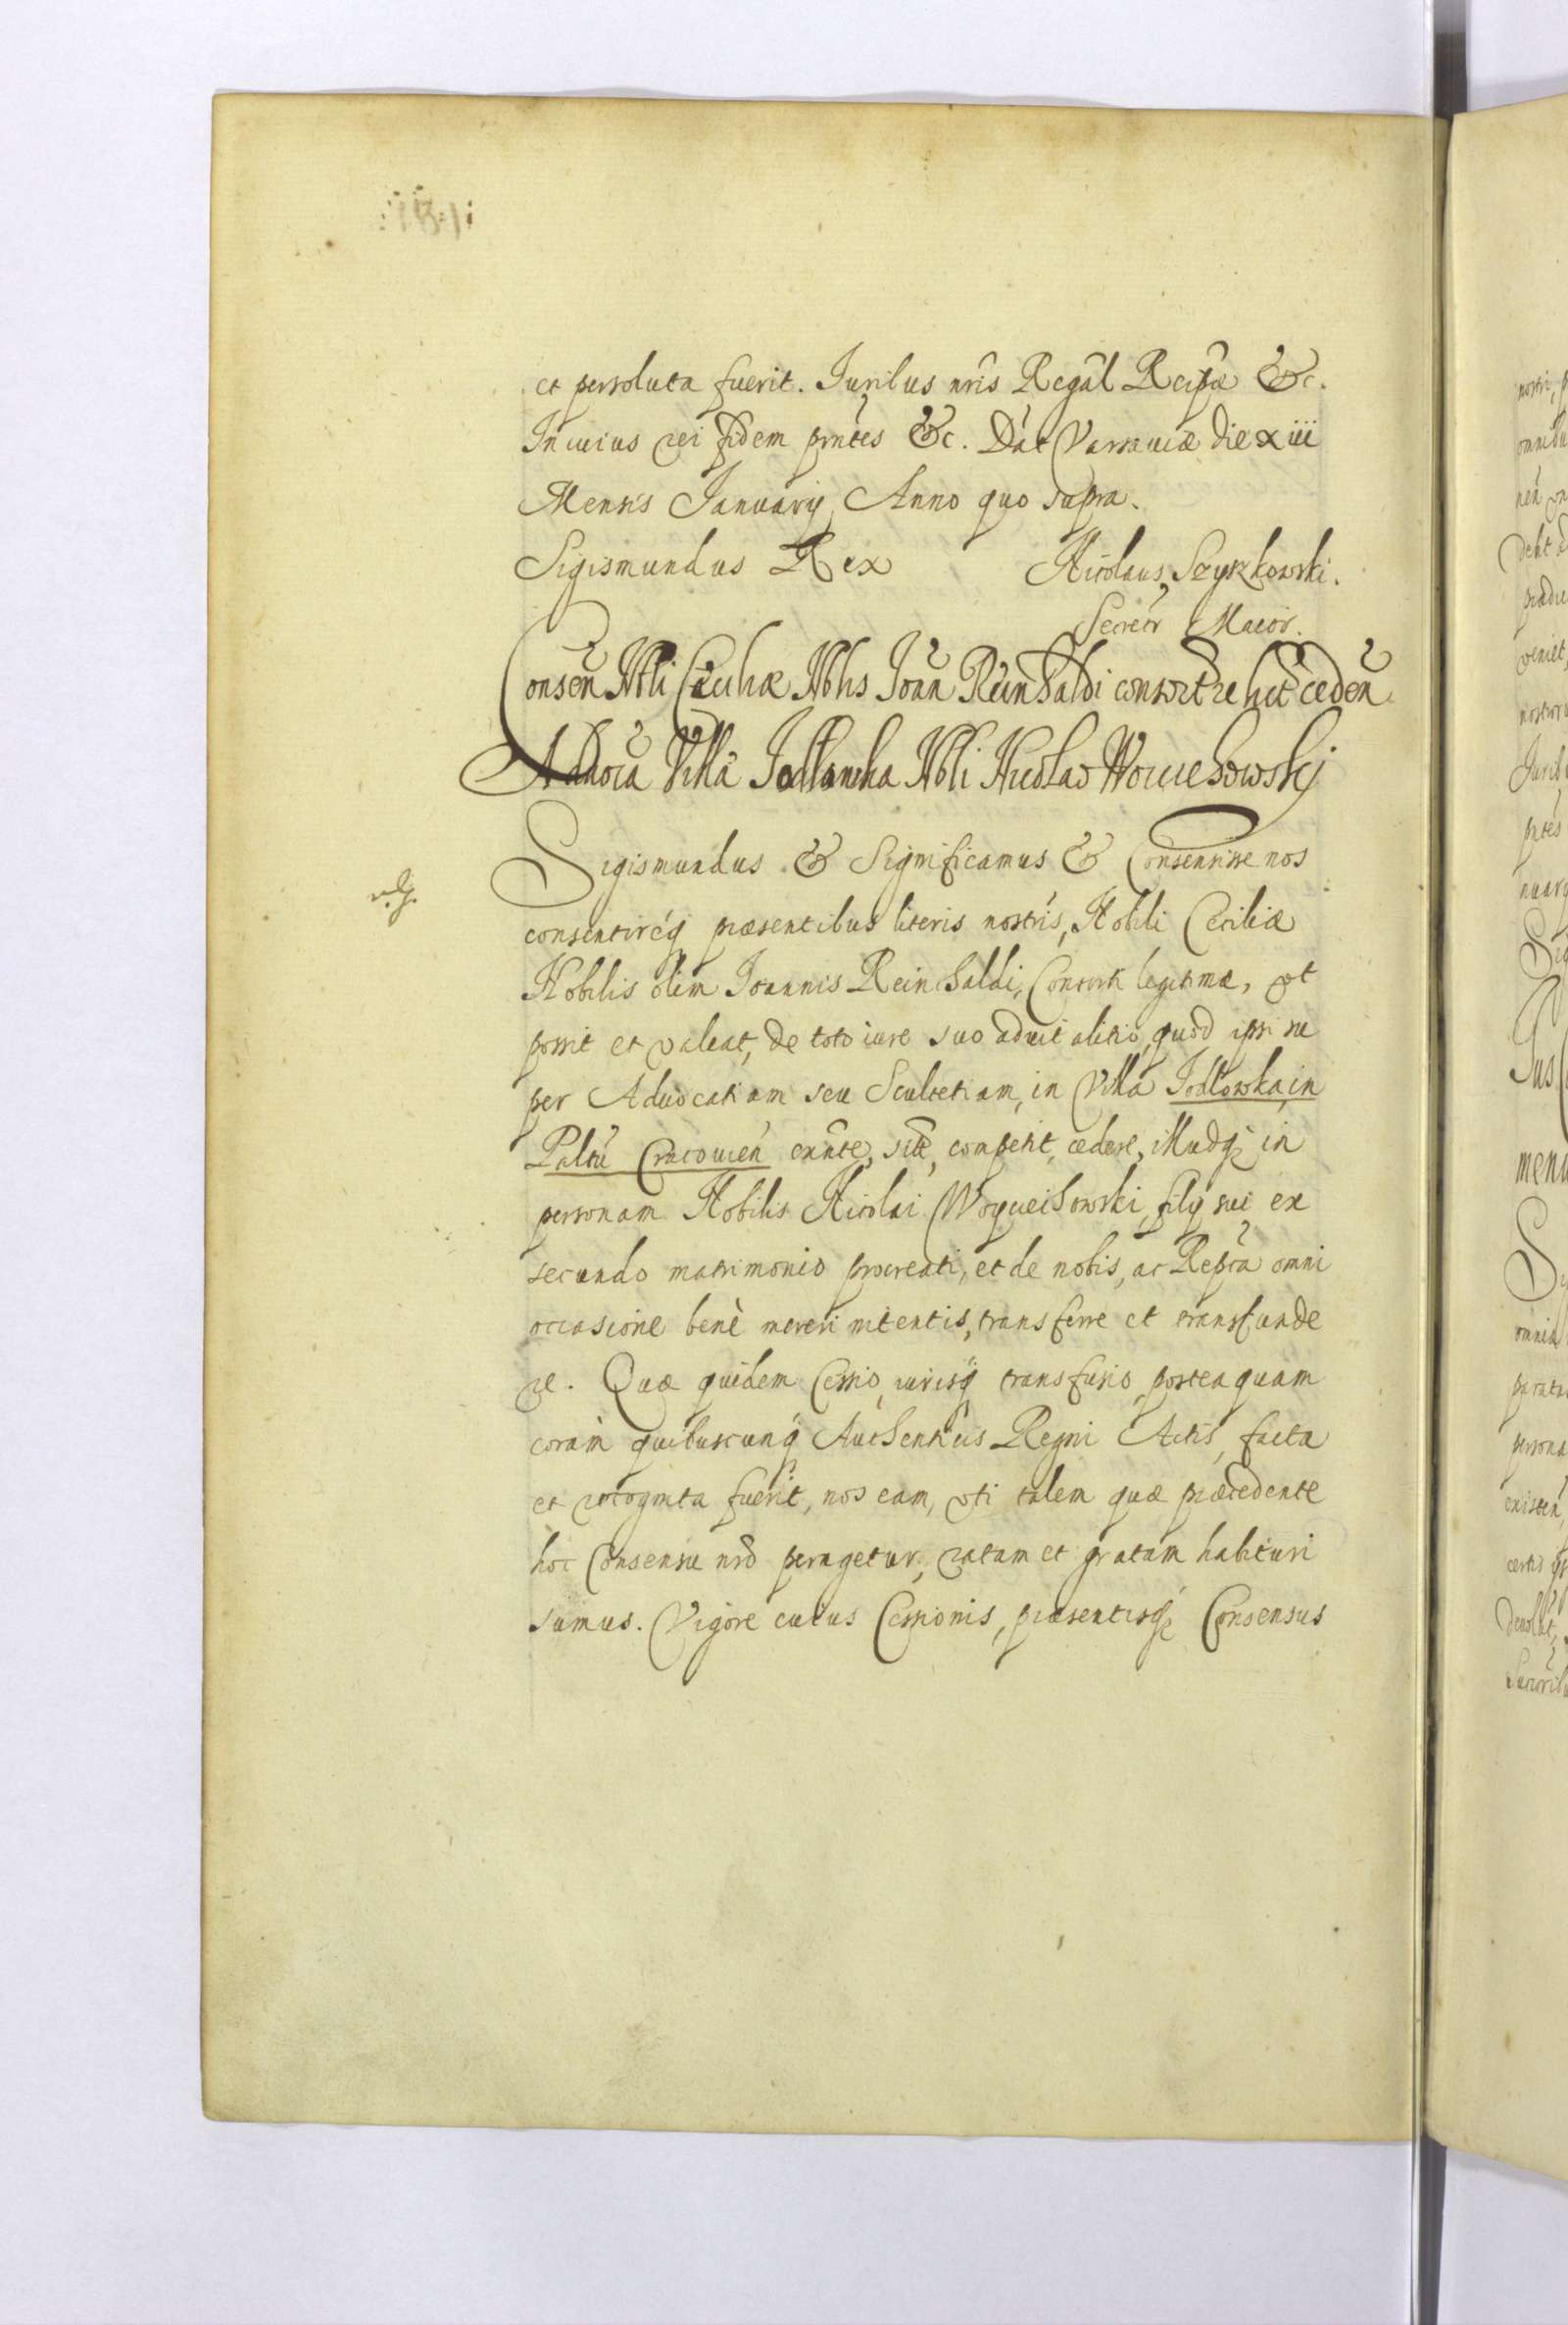 et persoluta fuerit. Iuribus nris Regal Reipæ &c.
In cuius rei fidem pntes &c. Dat Varsauiæ die xiii
Mensis Ianuarij Anno quo supra.
Sigismundus Rex Nicolaus Szyszkowski.
Secretr Maior.
Consen Nbli Ceciliæ Nblis Ioan Reinhaldi consort relict ceden
Aduocia Villa Iodlowka Nbli Nicolao Woiuchowskj
Sigismundus & Significamus & Consensisse nos
consentireq præsentibus literis nostris, Nobili Ceciliæ
Nobilis olim Ioannis Reinhaldi, Consorti legitimæ, vt
possit et valeat, de toto iure suo aduitalitio, quod ipsi su
per Aduocatiam seu Scultetiam, in Villa Iodłowka, in
Paltu Cracouien exnte, site, competit, cedere, illudq in
personam Nobilis Nicolai Woyueihowski, filij sui ex
secundo matrimonio procreati, et de nobis, ac Repca omni
occasione benè mereri nitentis, transferre et transfunde
re. Quæ quidem Cessio, iurisq transfusio, posteaquam
coram quibuscunq Authenticis Regni Actis, facta
et recognita fuerit, nos eam, vti talem quæ præcedente
hoc Consensu nro peragetur, ratam et gratam habituri
sumus. Vigore cuius Cessionis, præsentisq Consensus